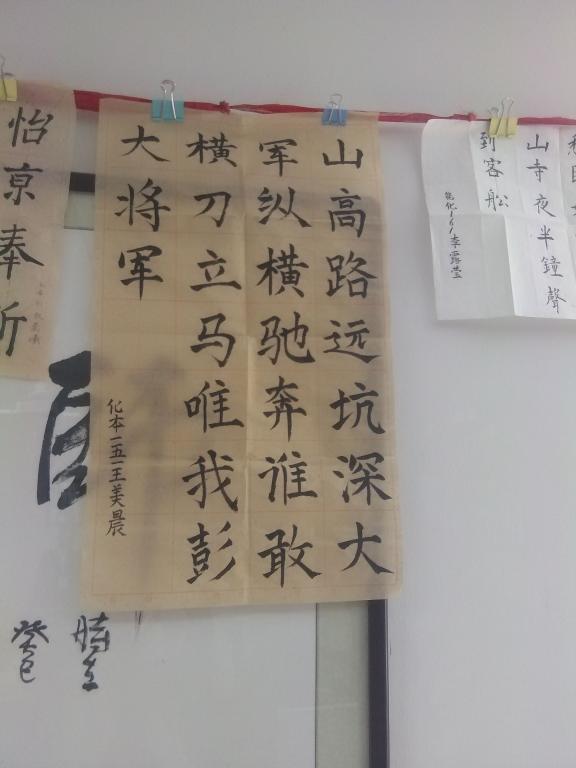 山高路远坑深大
军纵横驰奔谁敢
横刀立马唯我彭
大将军
化本一五一王美晨
山寺夜半鐘聲
到客船
能化161李露莹
怡京奉折
癸巳